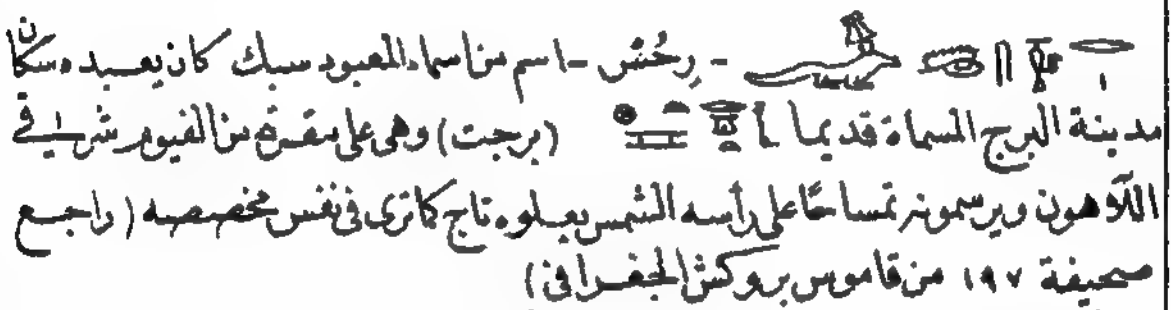 - رِخُسْ - اسم من اسماء المعبود سبك كان يعبده سكان
مدينة البرج المسماة قديما (برجت) وهى على مقربة من الفيوم شرقى
اللاهون ويرسمونه تمساحًا على رأسه الشمس يعلوه تاج كاترى فى نفس مخصصه (راجع
صحيفة ١٩٧ من قاموس بروكش الجغرافى)